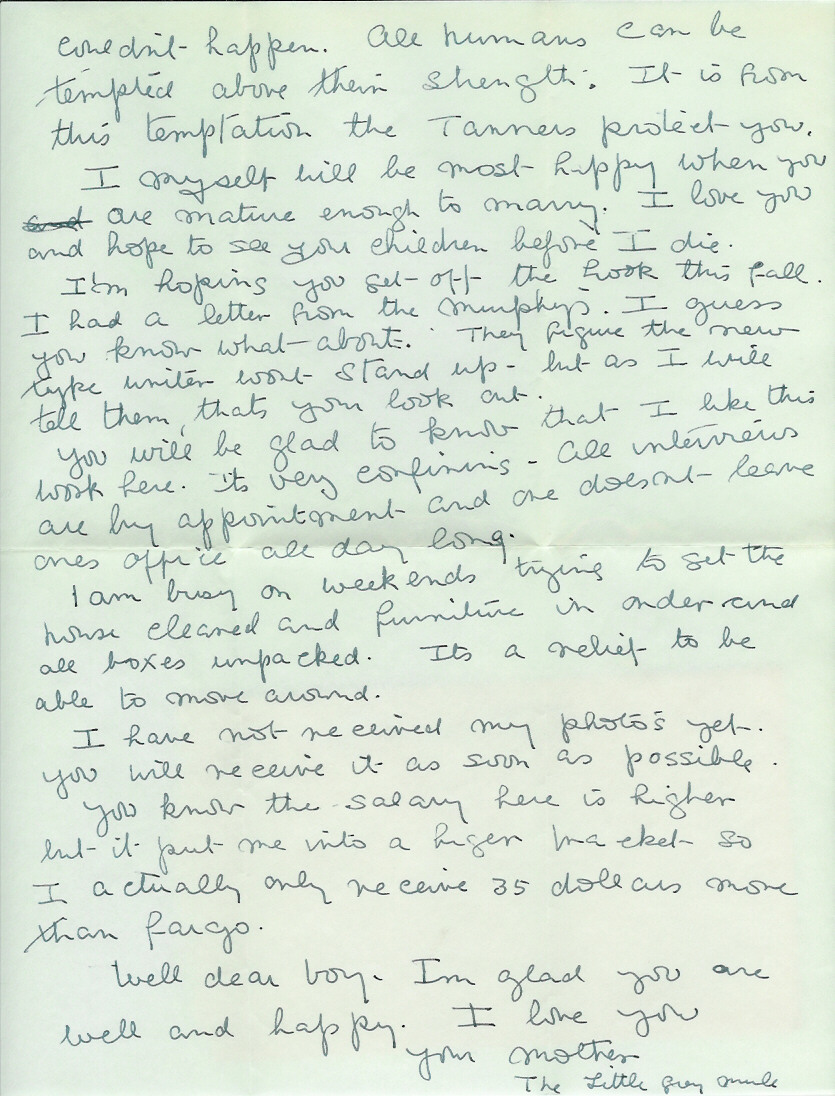 couldn't happen. All humans can be
tempted above their strength. It is from
this temptation the Tanners protect you.
I myself will be most happy when you
are mature enough to marry. I love you
and hope to see your children before I die.
I'm hoping you get off the hook this fall.
I had a letter from the Murphy's. I guess
you know what about. They figure the new
type writer wont stand up - but as I will
tell them, thats your look out.
You will be glad to know that I like this
work here. Its very confining - all interviews
are by appointment and one doesnt leave
ones office all day long.
I am busy on weekends trying to get the
house cleaned and furniture in order and
all boxes unpacked. Its a relief to be
able to move around.
I have not received my photo's yet.
you will receive it as soon as possible.
You know the salary here is higher
but it put me into a higer bracket so
I actually only receive 35 dollars more
than Fargo.
Well dear boy. Im glad you are
well and happy. I love you
your mother
The Little grey mule